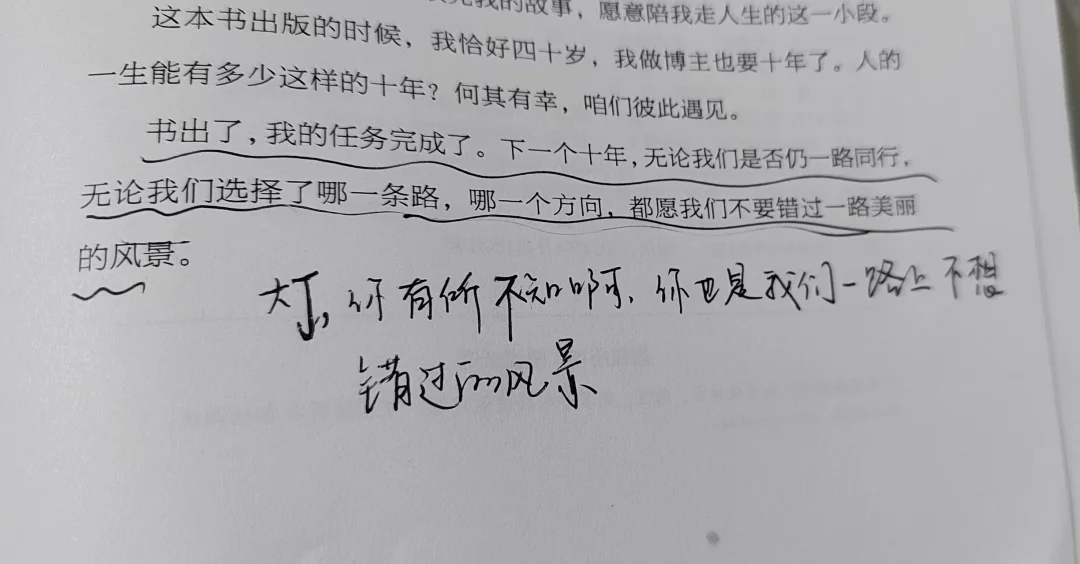 我的故事，愿意陪我走人生的这一小段。
这本书出版的时候，我恰好四十岁，我做博主也要十年了。人的
一生能有多少这样的十年？何其有幸，咱们彼此遇见。
书出了，我的任务完成了。下一个十年，无论我们是否仍一路同行，
无论我们选择了哪一条路，哪一个方向，都愿我们不要错过一路美丽
的风景。
大J，你有所不知啊，你也是我们一路上不想
错过的风景